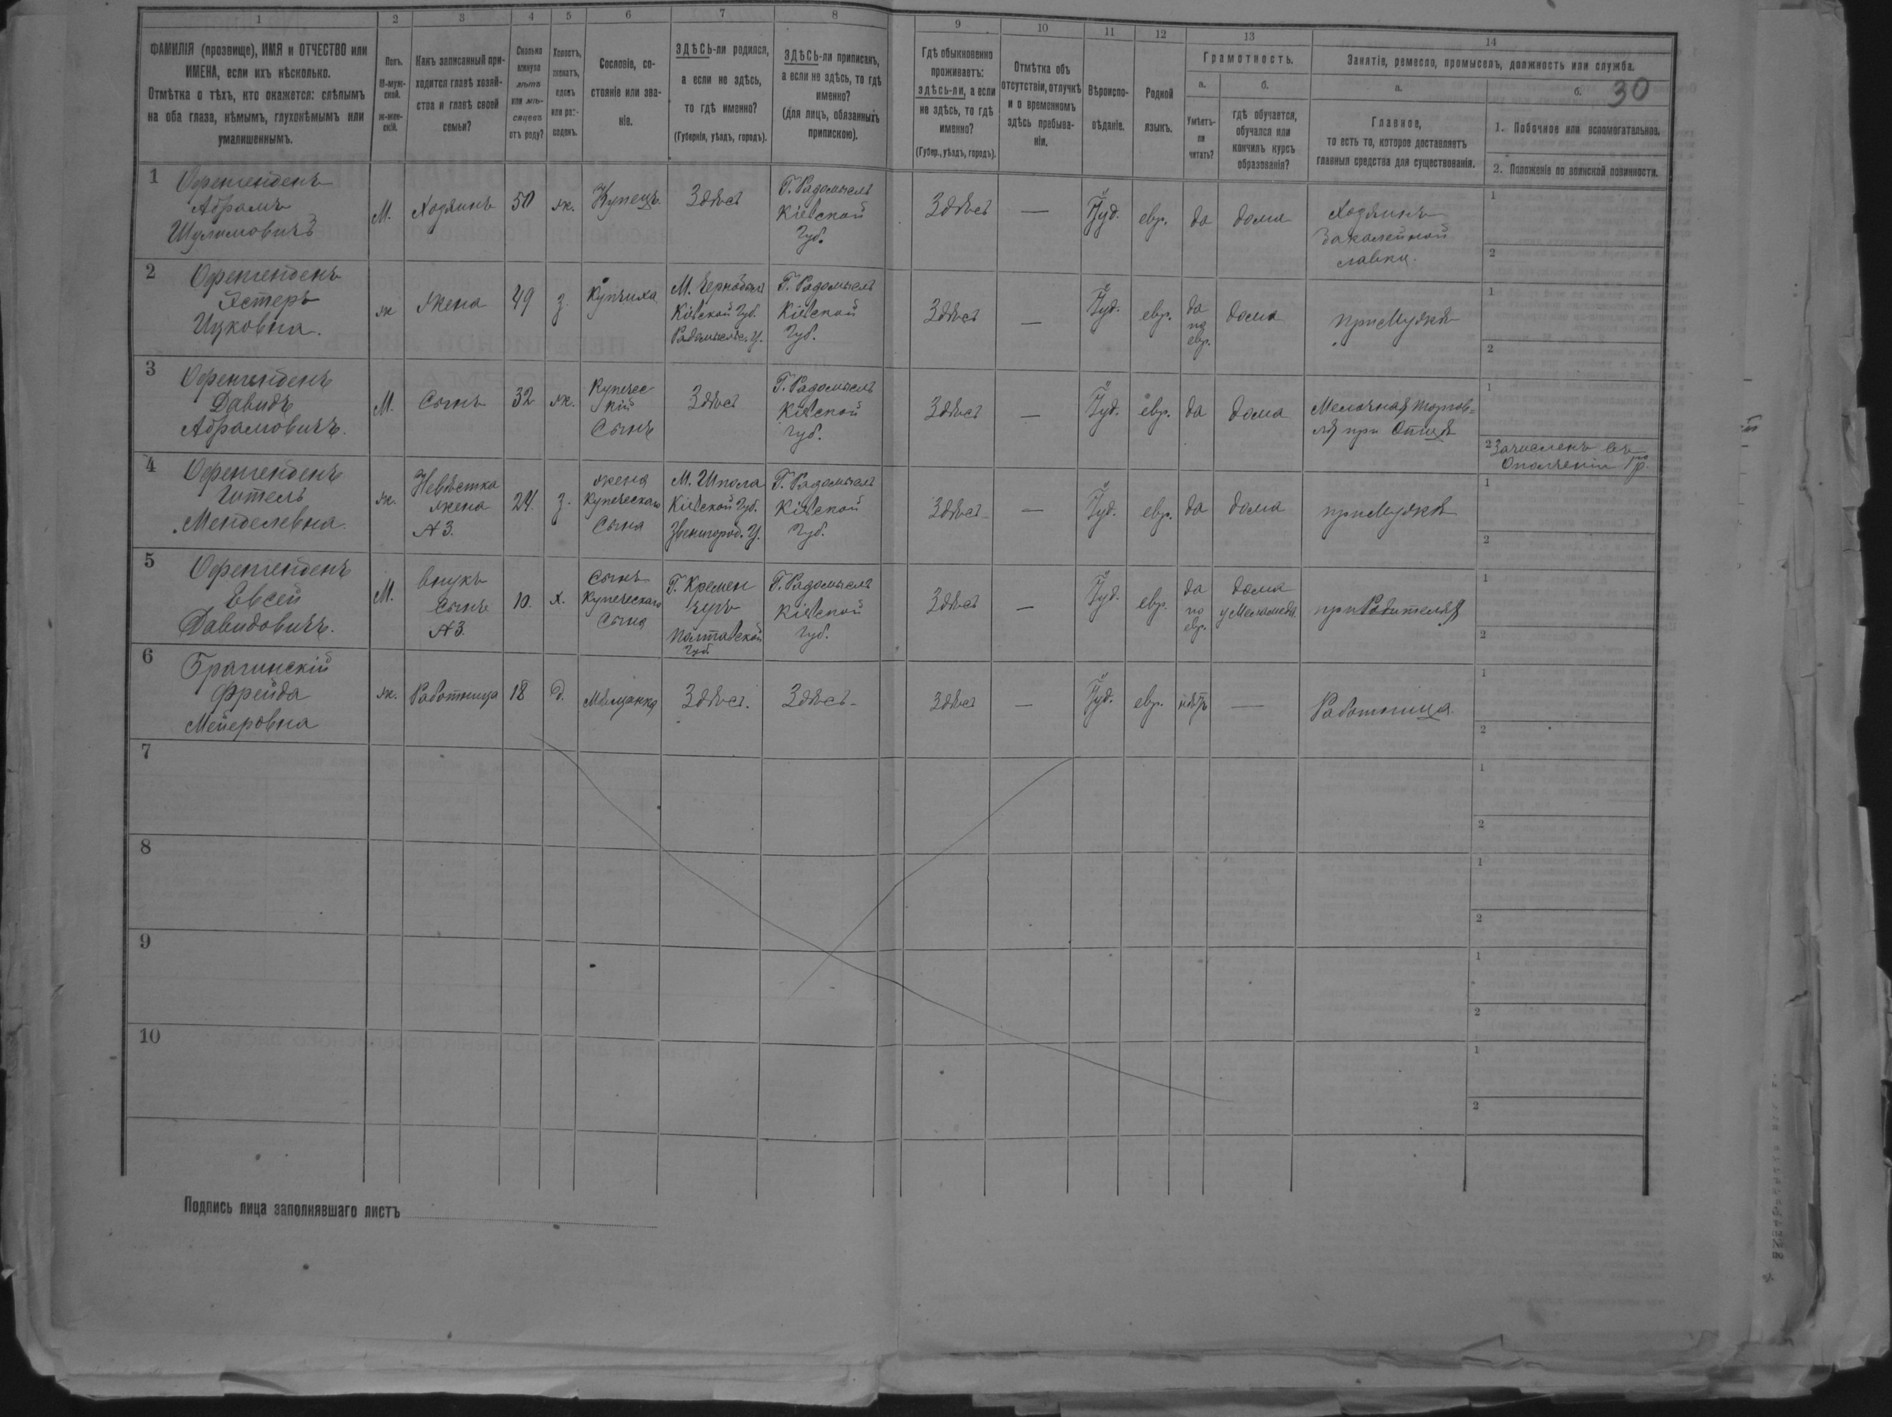 30
1 2 3 4 5 6 7 8 9 10 11 12 13 14
ФАМИЛІЯ (прозвище), ИМЯ и ОТЧЕСТВО или
ИМЕНА, если ихъ нѣсколько.
Отмѣтка о тѣхъ, кто окажется: слѣпымъ
на оба глаза, нѣмымъ, глухонѣмымъ или
умалишеннымъ.
Полъ.
М-муж-
ской.
ж-жен-
скій.
Какъ записанный при-
ходится главѣ хозяй-
ства и главѣ своей
семьи?
Сколько
минуло
лѣтъ
или мѣ-
сяцевъ
отъ роду?
Холостъ,
женатъ,
вдовъ
или раз-
веденъ.
Сословіе, со-
стояніе или зва-
ніе.
ЗДѢСЬ-ли родился,
а если не здѣсь,
то гдѣ именно?
(Губернія, уѣздъ, городъ).
ЗДѢСЬ-ли приписанъ,
а если не здѣсь, то гдѣ
именно?
(для лицъ, обязанныхъ
припискою).
Гдѣ обыкновенно
проживаетъ:
здѣсь-ли, а если
не здѣсь, то гдѣ
именно?
(Губер., уѣздъ, городъ).
Отмѣтка объ
отсутствіи, отлучкѣ
и о временномъ
здѣсь пребыва-
ніи.
Вѣроиспо-
вѣданіе.
Родной
языкъ.
Грамотность.
а.
Умѣетъ-
ли
читать?
б.
гдѣ обучается,
обучался или
кончилъ курсъ
образованія?
Занятіе, ремесло, промыселъ, должность или служба.
а.
Главное,
то есть то, которое доставляетъ
главныя средства для существованія.
б.
1. Побочное или вспомогательное.
2. Положеніе по воинской повинности.
1 Офенгенденъ
Абрамъ
Шулимовичъ
М.
Хозяинъ
50
ж.
Купецъ
Здѣсь
Г. Радомысль
Кіевской
Губ.
Здѣсь
—
Іуд.
евр.
да
дома
Хозяинъ
Бакалейной
лавки.
1
2
2 Офенгенденъ
Эстеръ
Ицковна.
ж
жена
49
з.
Купчиха
М. Чернобыль
Кіевской Губ.
Радомысльс. У.
Г. Радомысль
Кіевской
Губ.
Здѣсь
—
Іуд.
евр.
да
по
евр.
дома
при Мужѣ
1
2
3 Офенгенденъ
Давидъ
Абрамовичъ.
М.
Сынъ
32
ж.
Купечес
кій
Сынъ
Здѣсь
Г. Радомысль
Кіевской
Губ.
Здѣсь
—
Іуд.
евр.
да
дома
Мелочная торгов-
ля при Отцѣ
1
2 Зачисленъ въ
Ополченіи
4 Офенгенденъ
Гитель
Менделевна.
ж.
Невѣстка
жена
№ 3.
24.
з.
жена
Купеческаго
Сына
М. Шпола
Кіевской Губ.
Звенигород. У.
Г. Радомысль
Кіевской
Губ.
Здѣсь
—
Іуд.
евр.
да
дома
при Мужѣ
1
2
5 Офенгенденъ
Евсей
Давидовичъ.
М.
внукъ
Сынъ
№ 3.
10.
х.
Сынъ
Купеческаго
Сына
Г. Кремен
чугъ
Полтавской
Губ
Г. Радомысль
Кіевской
Губ.
Здѣсь
—
Іуд.
евр.
да
по
евр.
дома
у Меламеда
при Родителях
1
2
6 Брагинскій
Фрейда
Мейеровна
ж.
Работница
18
д.
Мѣщанка
Здѣсь.
Здѣсь
Здѣсь
—
Іуд.
евр.
нѣтъ
—
Работница.
1
2
7
1
2
8
1
2
9
1
2
10
1
2
Подпись лица заполнявшаго листъ